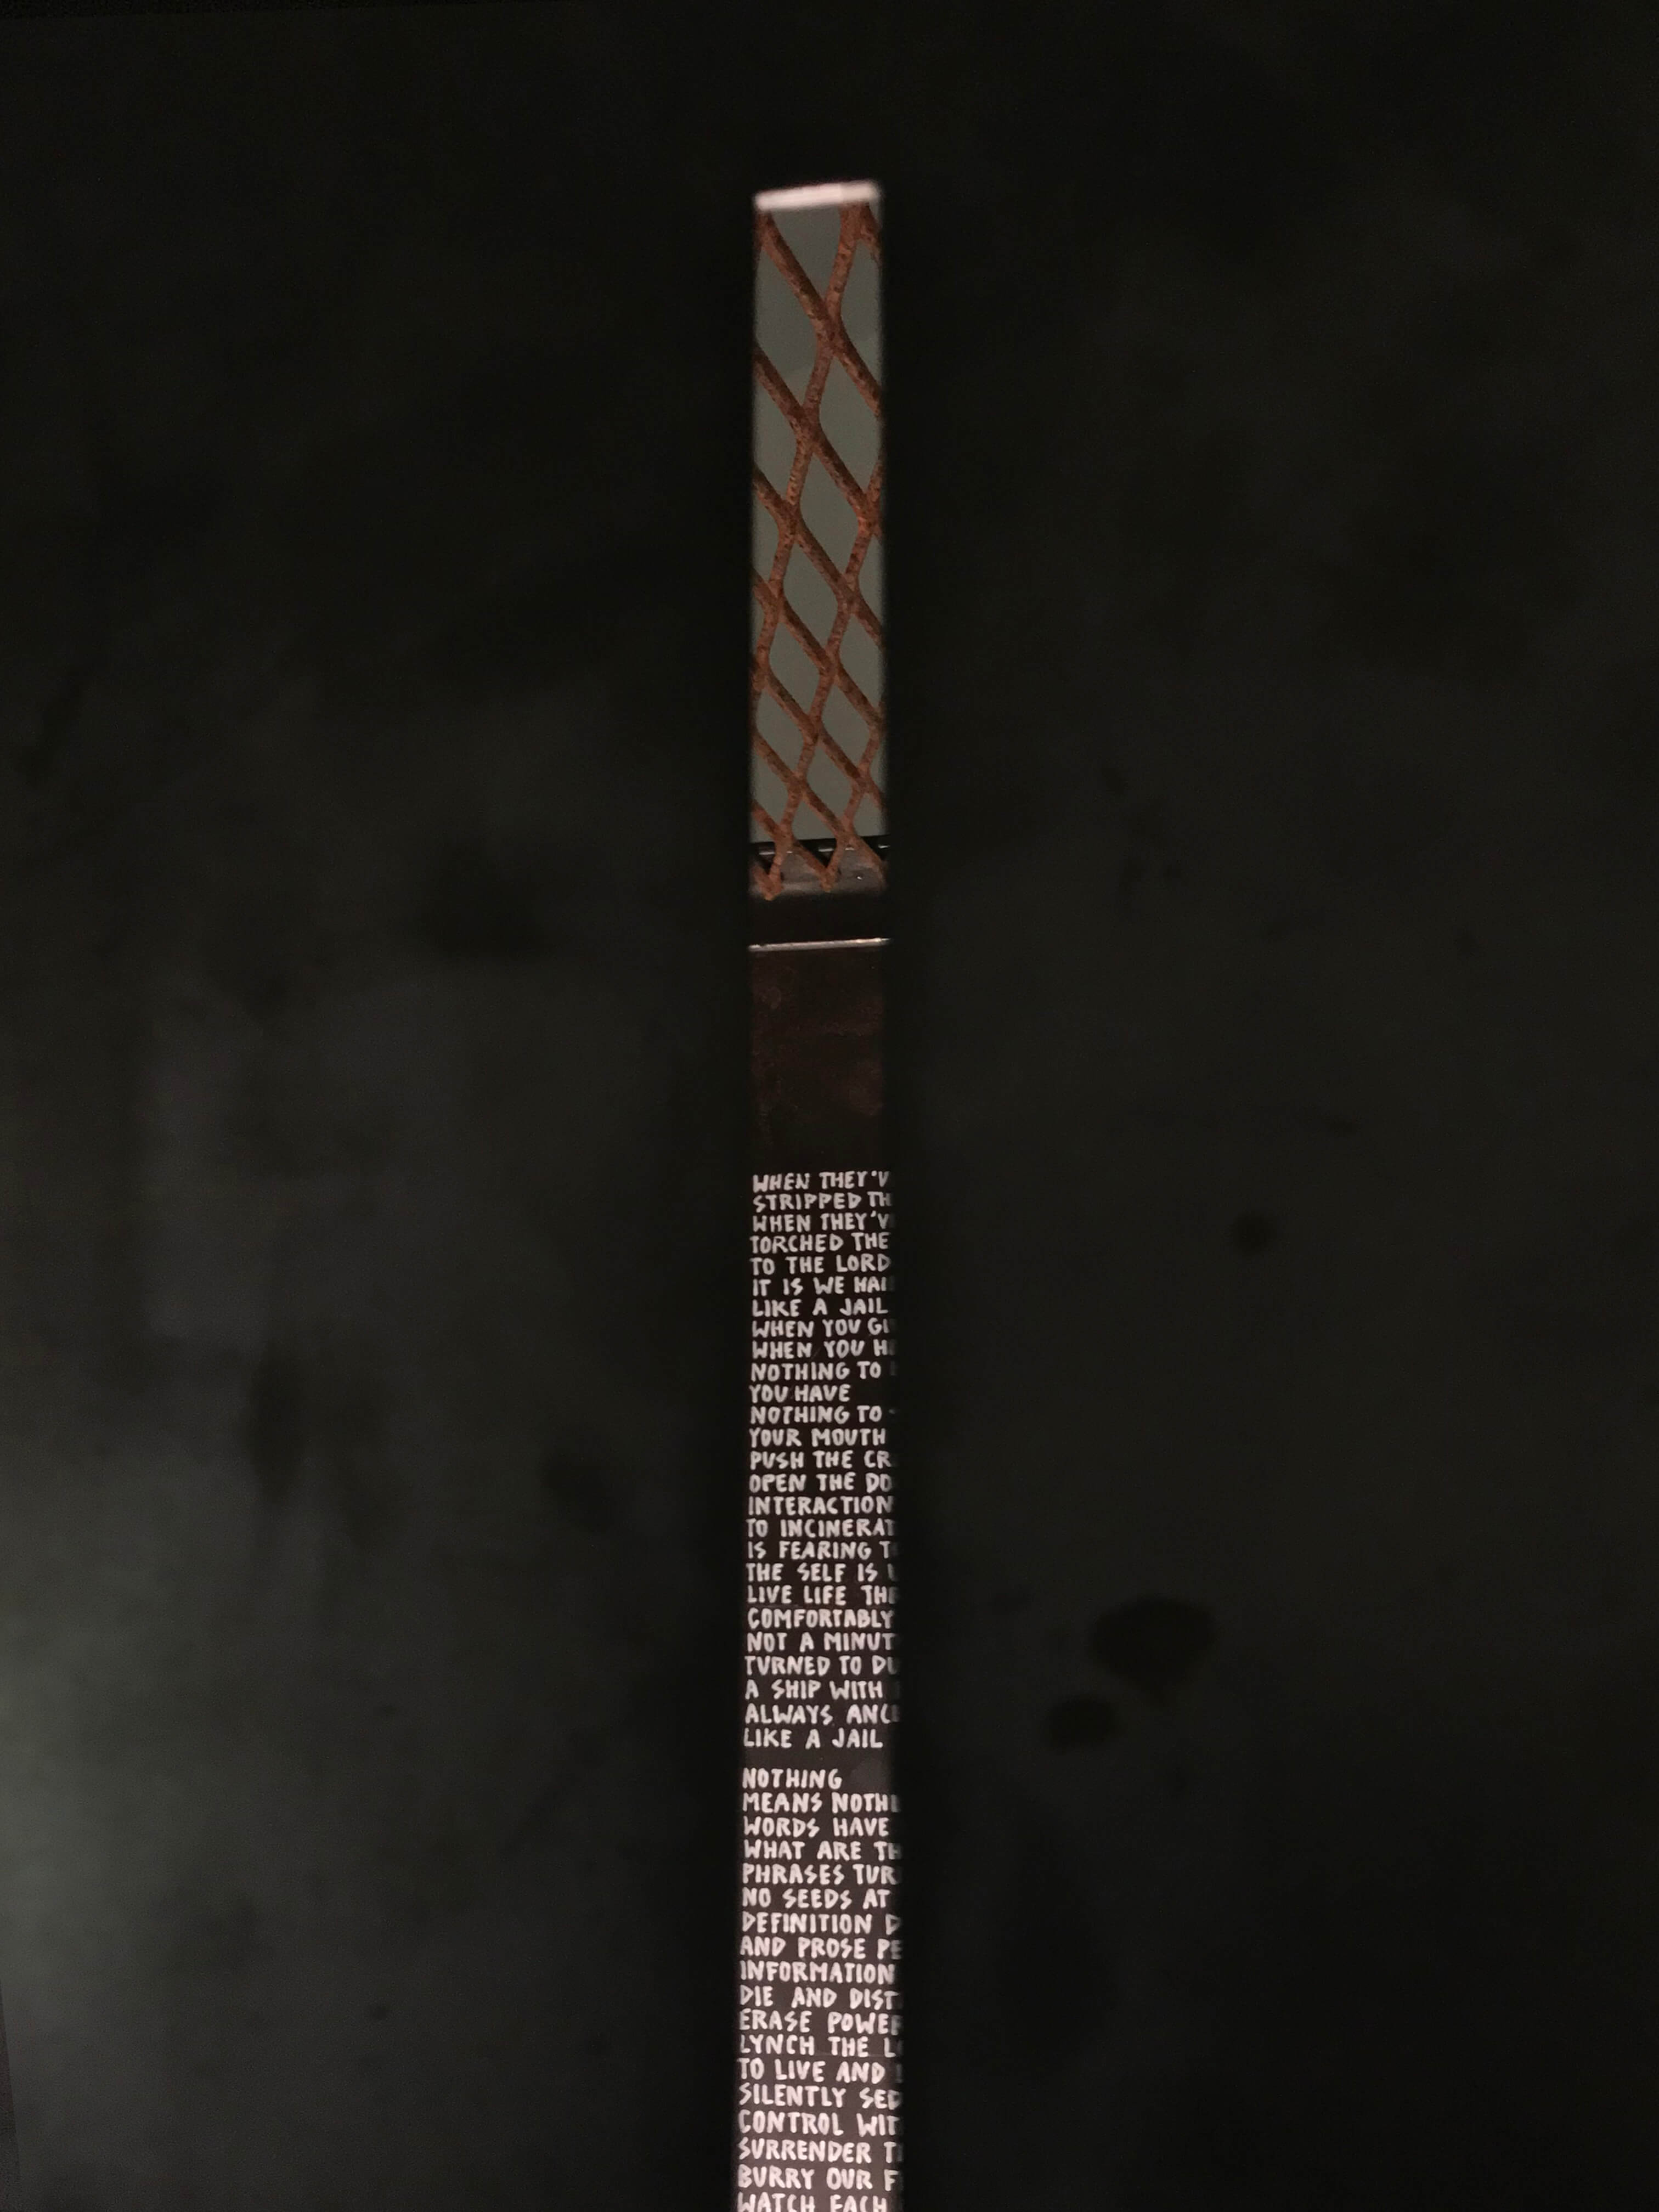 WHEN THEY'V
STRIPPED TH
WHEN THEY'V
TORCHED THE
TO THE LORD
IT IS WE HAI
LIKE A JAIL
WHEN YOU GI
WHEN YOU H
NOTHING TO
YOU HAVE
NOTHING TO
YOUR MOUTH
PUSH THE CR
OPEN THE DO
INTERACTION
TO INCINERAT
IS FEARING T
THE SELF IS
LIVE LIFE THE
COMFORTABLY
NOT A MINUT
TURNED TO DU
A SHIP WITH
ALWAYS ANC
LIKE A JAIL
NOTHING
MEANS NOTHI
WORDS HAVE
WHAT ARE TH
PHRASES TUR
NO SEEDS AT
DEFINITION D
AND PROSE PE
INFORMATION
DIE AND DIST
ERASE POWER
LYNCH THE L
TO LIVE AND
SILENTLY SED
CONTROL WIT
SURRENDER T
BURRY OUR F
WATCH EACH